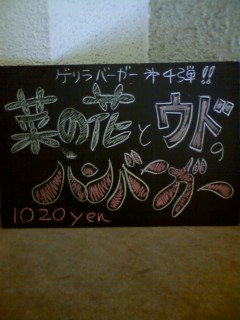 ゲリラバーガー 第4弾!!
菜の花とウドの
ハンバーガー
1020yen